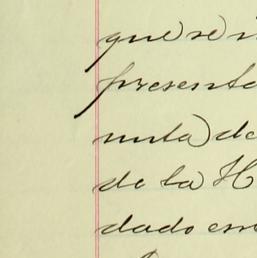 que se i
presenta
nuta) de
de la H
dado em